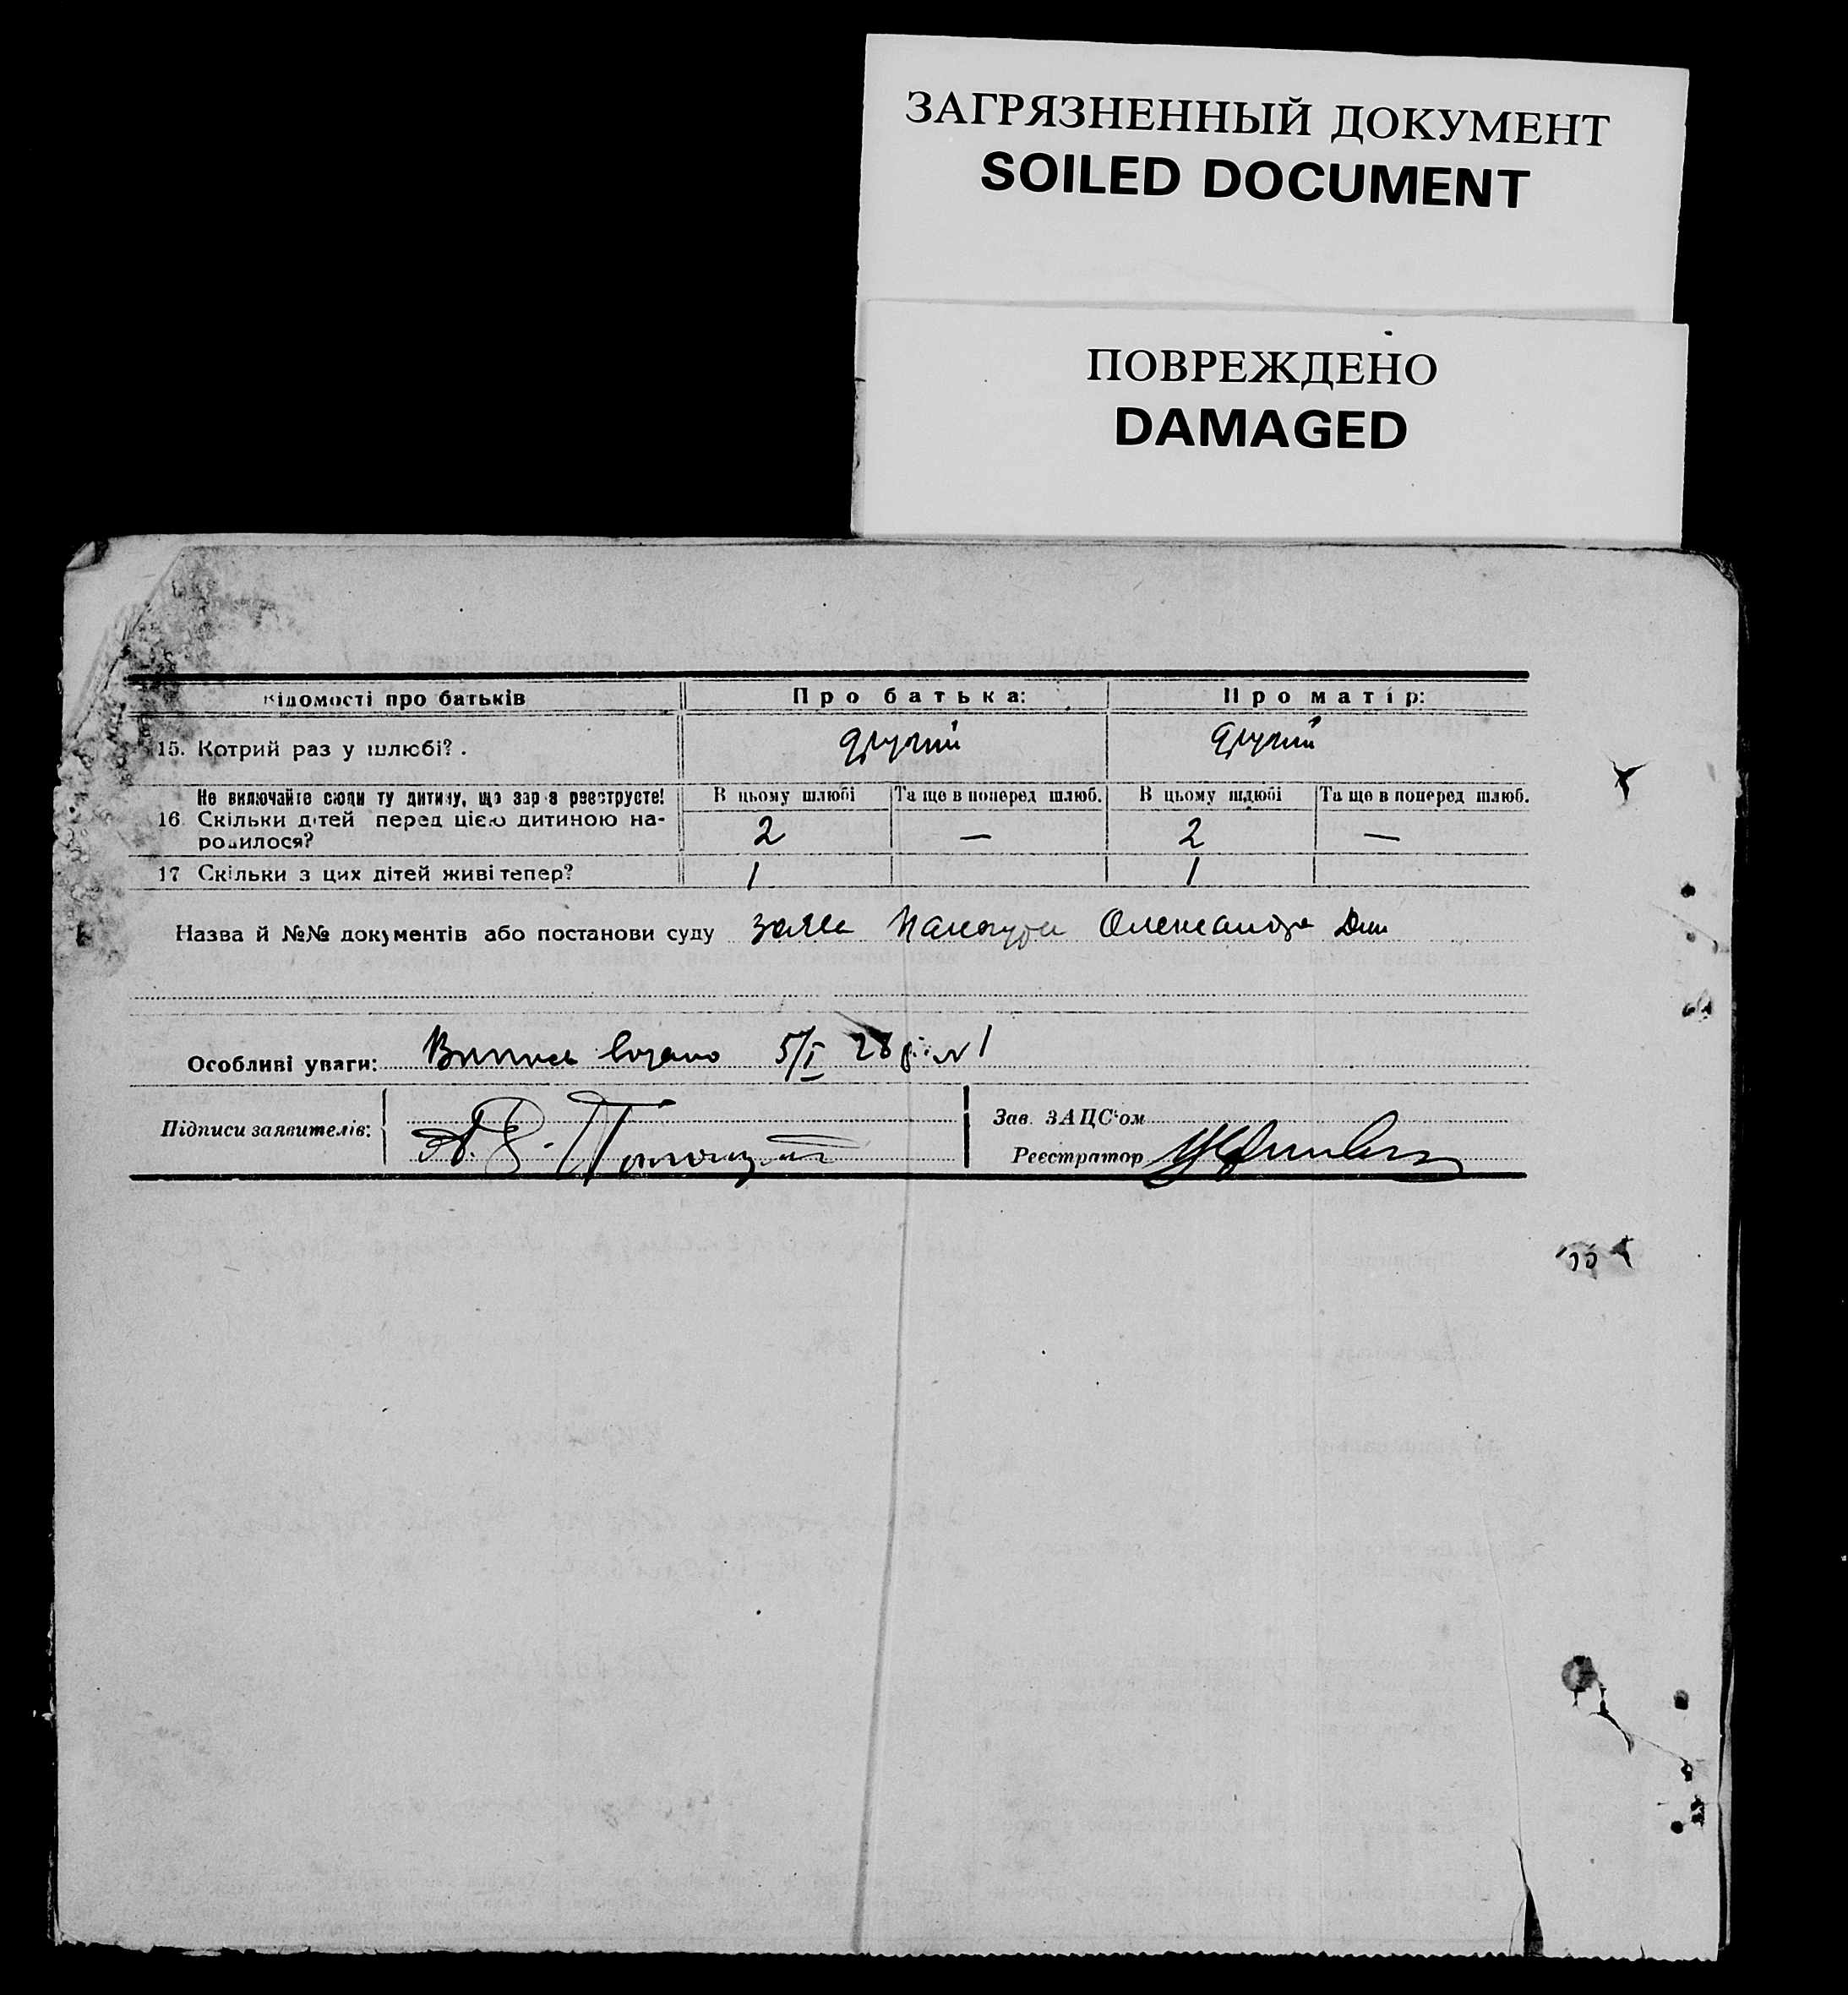 ЗАГРЯЗНЕННЫЙ ДОКУМЕНТ
SOILED DOCUMENT
ПОВРЕЖДЕНО
DAMAGED
Відомості про батьків
Про батька:
Про матір:
15. Котрий раз у шлюбі?.
другий
другий
Не включайте сюди ту дитину, що зараз реєструєте!
В цьому шлюбі
Та ще в поперед шлюб.
В цьому шлюбі
Та ще в поперед шлюб.
16. Скільки дітей перед цією дитиною на-
родилося?
2
—
2
—
17 Скільки з цих дітей живі тепер?
1
1
Назва й №№ документів або постанови суду заява Олександра
Особливі уваги: Випись видано 5/I 28 р. № 1
Підписи заявителів:
Зав. ЗАЦС'ом
Реєстратор